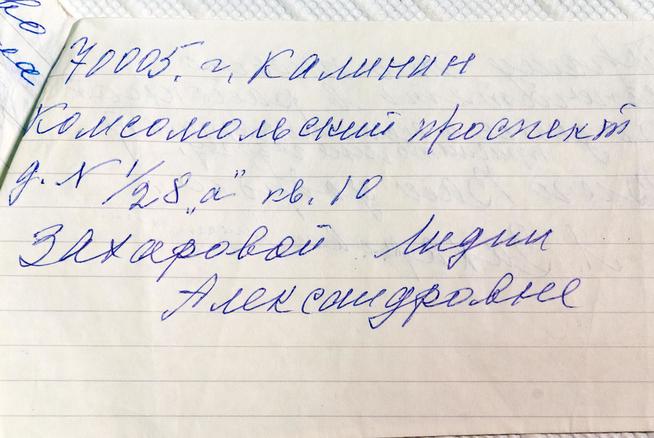 70005. г. Калинин
Комсомольский проспект
д. N 1/28 „а" кв. 10
Захаровой Лидии
Александровне